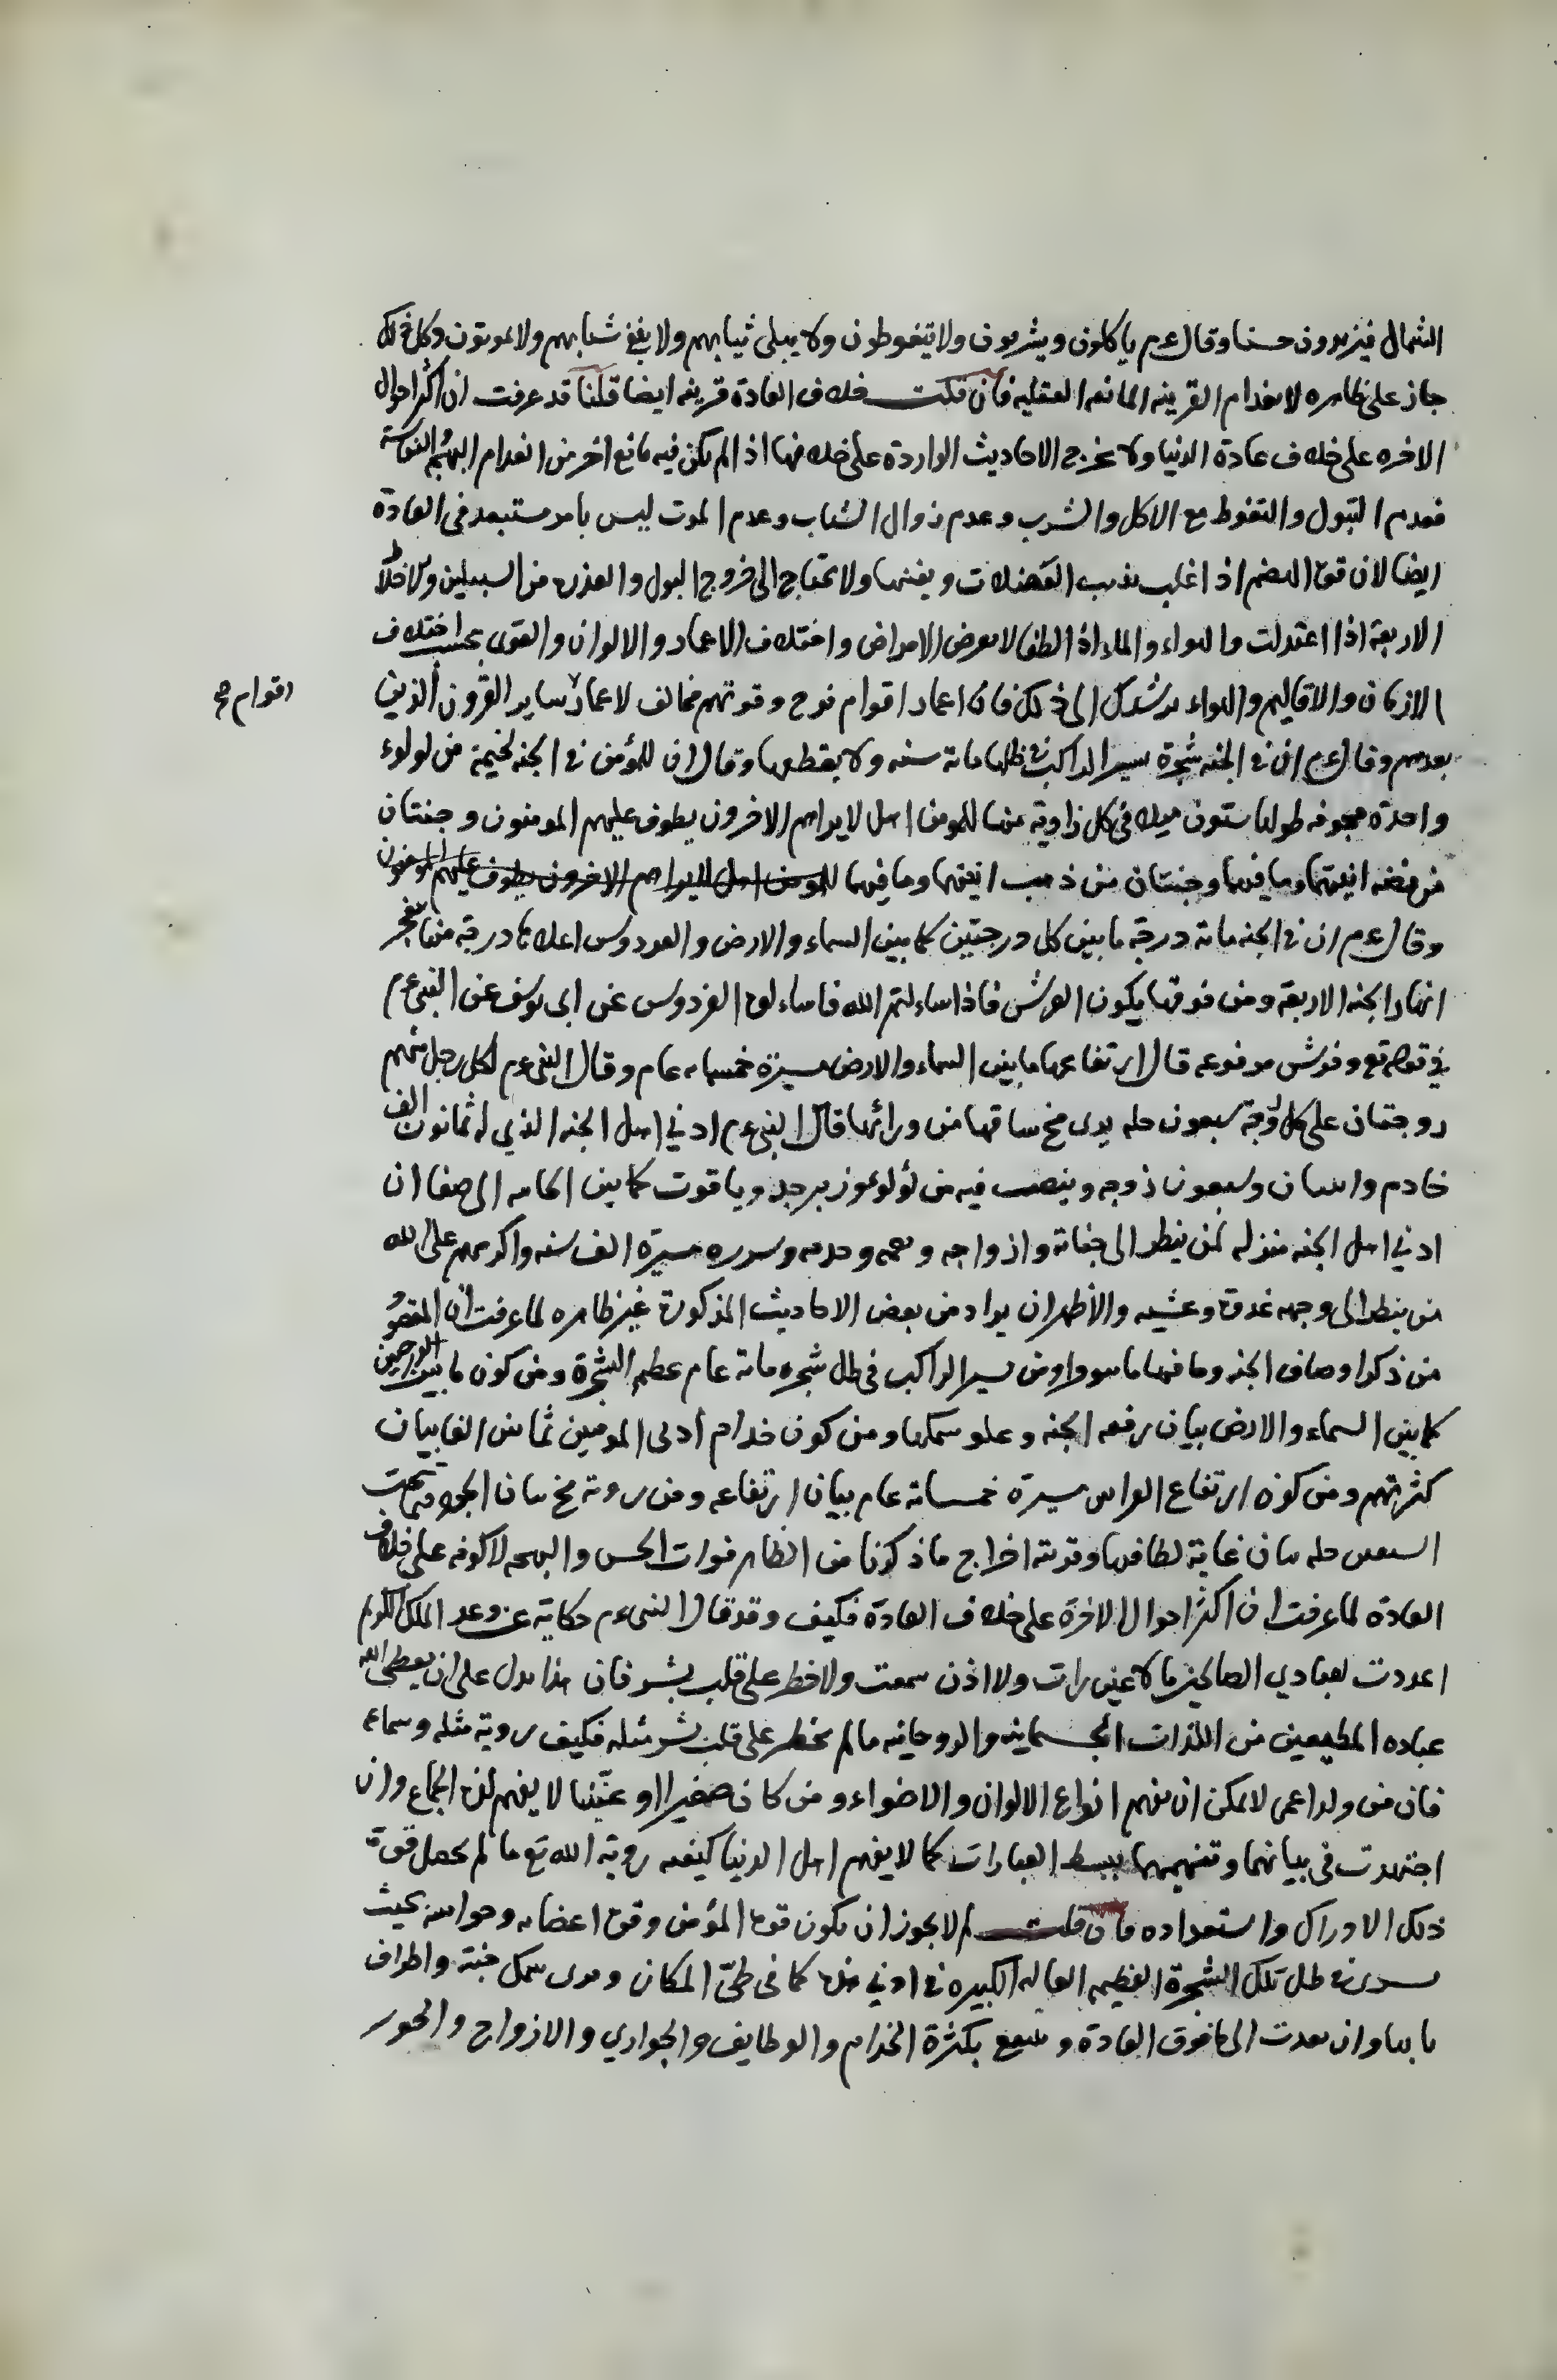 الشمال فيزدون حسنا وقال عم ياكلون ويشربون ولا يتغوطون ولا يبلى ثيابهم ولا يفنى شبابهم ولا يموتون وكل ذلك
جاز على ظاهره لانعدام القرينه المانعه العقليه فان قلت خلاف العادة قرينه ايضا قلنا قد عرفت ان اكثر احوال
الاخره على خلاف عادة الدنيا ولا يخرج الاحاديث الواردة على خلافها اذا لم يكن فيه مانع اخر من انعدام
فعدم التبول والتغوط مع الاكل والشرب وعدم زوال الشباب وعدم الموت ليس بامر مستبعد في العادة
ايضا لان قوة الهضم اذا غلب يذهب الفضلات ويفنيها ولا يحتاج الى خروج البول والعذره من السبيلين والاخلاط
الاربعة اذا اعتدلت والهواء والماء اذا لطفا لا يعرض الامراض واختلاف الاعمار والالوان والقوى بحسب اختلاف
الازمان والاقاليم والهواء يرشدك الى ذلك فان اعمار اقوام نوح وقوتهم مخالف لاعمار ساير القرون الذين
اقوام صح
بعدهم وقال عم ان في الجنه شجرة يسير الراكب في ظلها مائة سنه ولا يقطعها وقال ان للمؤمن في الجنه لخيمة من لولوء
واحدة مجوفه طولها ستون ميلا في كل زاوية منها للمومن اهل لا يراهم الاخرون يطوف عليهم المومنون وجنتان
من فضه انيتهما وما فيهما وجنتان من ذهب انيتهما وما فيهما للمومن اهل لا يراهم الاخرون يطوف عليهم المومنون
وقال عم ان في الجنه مائة درجة ما بين كل درجتين كما بين السماء والارض والفردوس اعلاها درجة منها تفجر
انهار الجنه الاربعة ومن فوقها يكون العرش فاذا سالتم الله فاسالوه الفردوس عن ابي يوسف عن النبي عم
في قوله تع وفرش مرفوعه قال ارتفاعها ما بين السماء والارض مسيرة خمسمايه عام وقال النبي عم لكل رجل منهم
زوجتان على كل زوجة سبعون حله يرى مخ ساقها من ورائها قال النبي عم ادني اهل الجنه الذي له ثمانون الف
خادم واثنتان وسبعون زوجه وينصب فيه من لؤلوء وزبرجد وياقوت كما بين الجابيه الى صنعا ان
ادني اهل الجنه منزله لمن ينظر الى جنانه وازواجه ونعيمه وخدمه وسرره مسيرة الف سنه واكرمهم على الله
من ينظر الى وجهه غدوة وعشيه والأظهر ان يراد من بعض الاحاديث المذكورة غير ظاهره لما عرفت ان المقصود
من ذكر اوصاف الجنه وما فيها ومن يسير الراكب في ظل شجره مائة عام عظم الشجرة ومن كون ما بين الدرجتين
كما بين السماء والارض بيان رفعه الجنه وعلو سمكها ومن كون خدام أدنى المومنين ثمانين الفا بيان
كثرتهم ومن كون ارتفاع الفراس مسيرة خمسمائة عام بيان ارتفاعه ومن روية مخ ساق الحور من تحت
السبعين حله بيان غاية لطافتها وقرينة اخراج ما ذكرنا من الظاهر فوات الحسن والبهجه لا كونه على خلاف
العادة لما عرفت ان اكثر احوال الاخرة على خلاف العادة فكيف وقد قال النبي عم حكاية عن وعد الملك الكريم
اعددت لعبادي الصالحين ما لا عين رات ولا اذن سمعت ولا خطر على قلب بشر فان هذا يدل على ان يعطى الله
عباده المطيعين من اللذات الجسمانيه والروحانيه ما لم يخطر على قلب بشر مثله فكيف روية مثله وسماعه
فان من ولد اعمى لا يمكن ان يفهم انواع الالوان والاضواء ومن كان صغيرا او عنّينا لا يفهم لذة الجماع وان
اجتهدت في بيانها وتفهيمها ببسط العبارات كما لا يفهم اهل الدنيا كيفيه روية الله تع ما لم يحصل قوة
ذلك الادراك واستعداده فان قلت لم لا يجوز ان يكون قوة المؤمن وقوة اعضائه وحواسه بحيث
يسير في ظل تلك الشجرة العظيمه العاليه الكبيره في ادني مدة كما في طيّ المكان ويرى سمك جنته واطراف
ما بها وان بعدت الى ما فوق العادة ويتمتع بكثرة الخدام والوظايف والجواري والازواج والحور